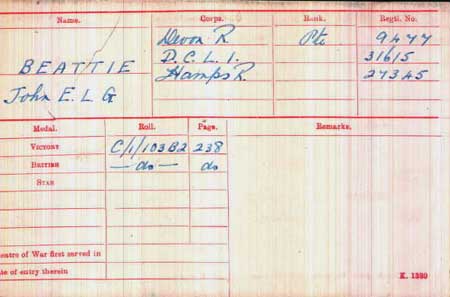 Name. Corps. Rank. Regtl. No.
Devon R Pte 9477
BEATTIE D.C.L.I. 31615
John E. L G Hamps R. 27345
Medal. Roll. Page. Remarks.
VICTORY C/1/103B2 238
BRITISH — do — do
STAR
eatre of War first served in
ate of entry therein K. 1380